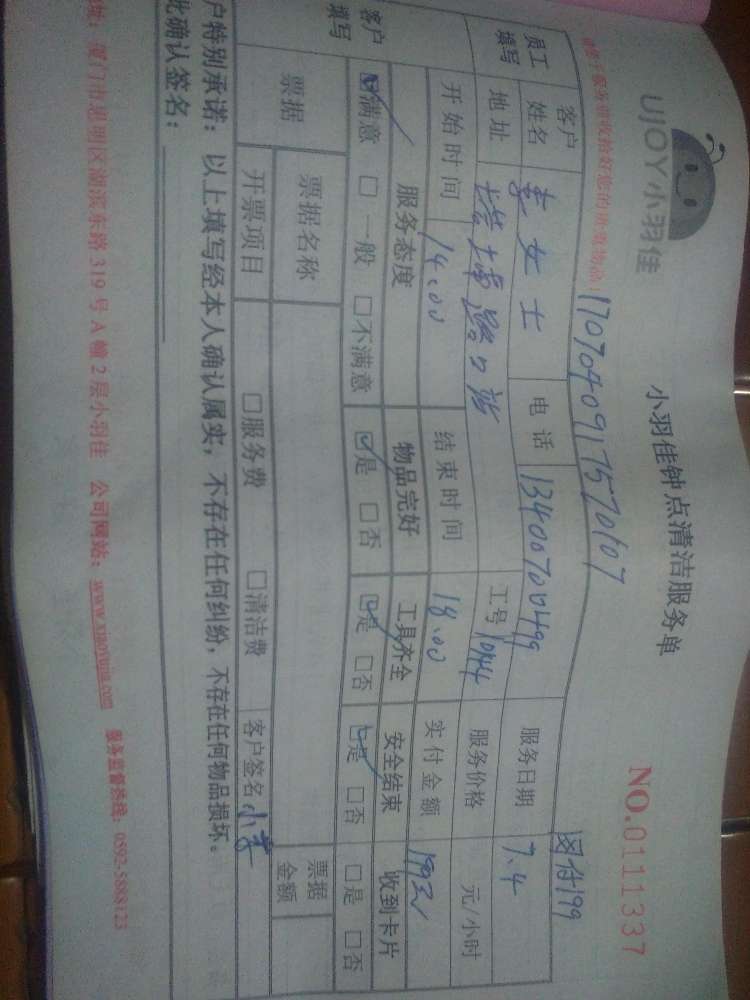 UJOY小羽佳
小羽佳钟点清洁服务单
NO.0111337
1707040917570107
员工填写
客户姓名 李女士 电话 服务日期 7.4
地址 路口站 工号 服务价格 元/小时
开始时间 14.00 结束时间 18.00 实付金额 199元
客户填写
服务态度 物品完好 工具齐全 安全结束 收到卡片
☑满意 □一般 □不满意 ☑是 □否 ☑是 □否 ☑是 □否 □是 □否
票据 票据名称 票据金额
开票项目 □服务费 □清洁费 客户签名 小李
户特别承诺:以上填写经本人确认属实,不存在任何纠纷,不存在任何物品损坏。
此确认签名:
址:厦门市思明区湖滨东路319号A幢2层小羽佳 公司网站:www.xiaoyujia.com 服务监督热线:0592-5888123